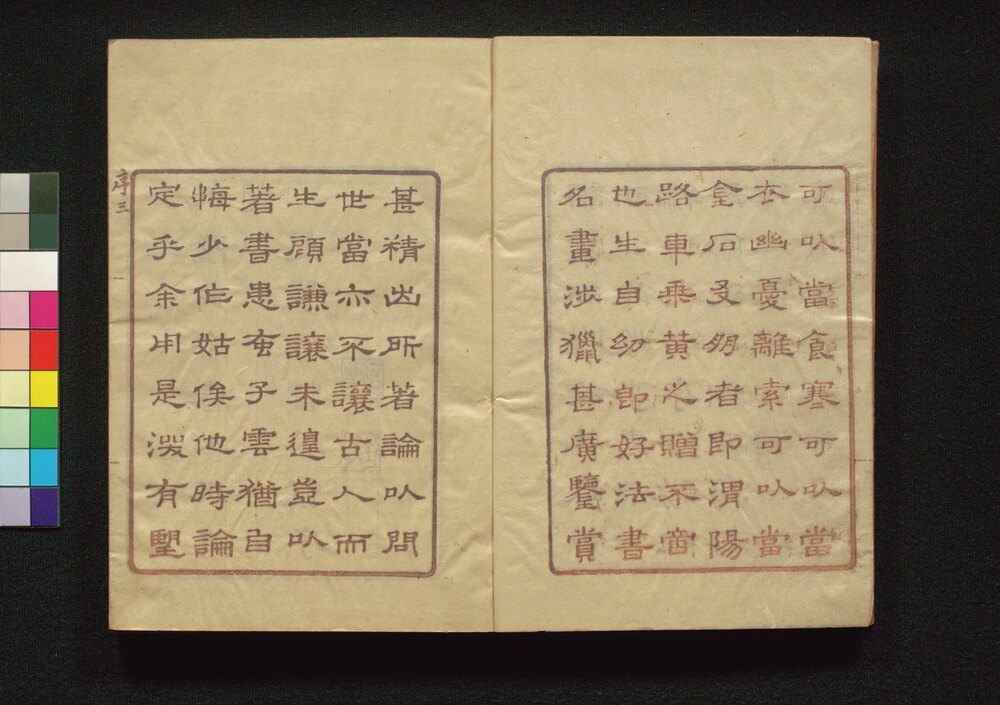 可以當食寒可以當
衣幽憂離索可以當
金石友朋者即渭陽
路車乘黄之贈不啻
也生自幼即好法書
名畫涉獵甚廣鑒賞
甚精出所著論以問
世當亦不讓古人而
生顧謙讓未遑豈以
著書患蚤子雲猶自
悔少作姑俟他時論
定乎余用是深有望
序三